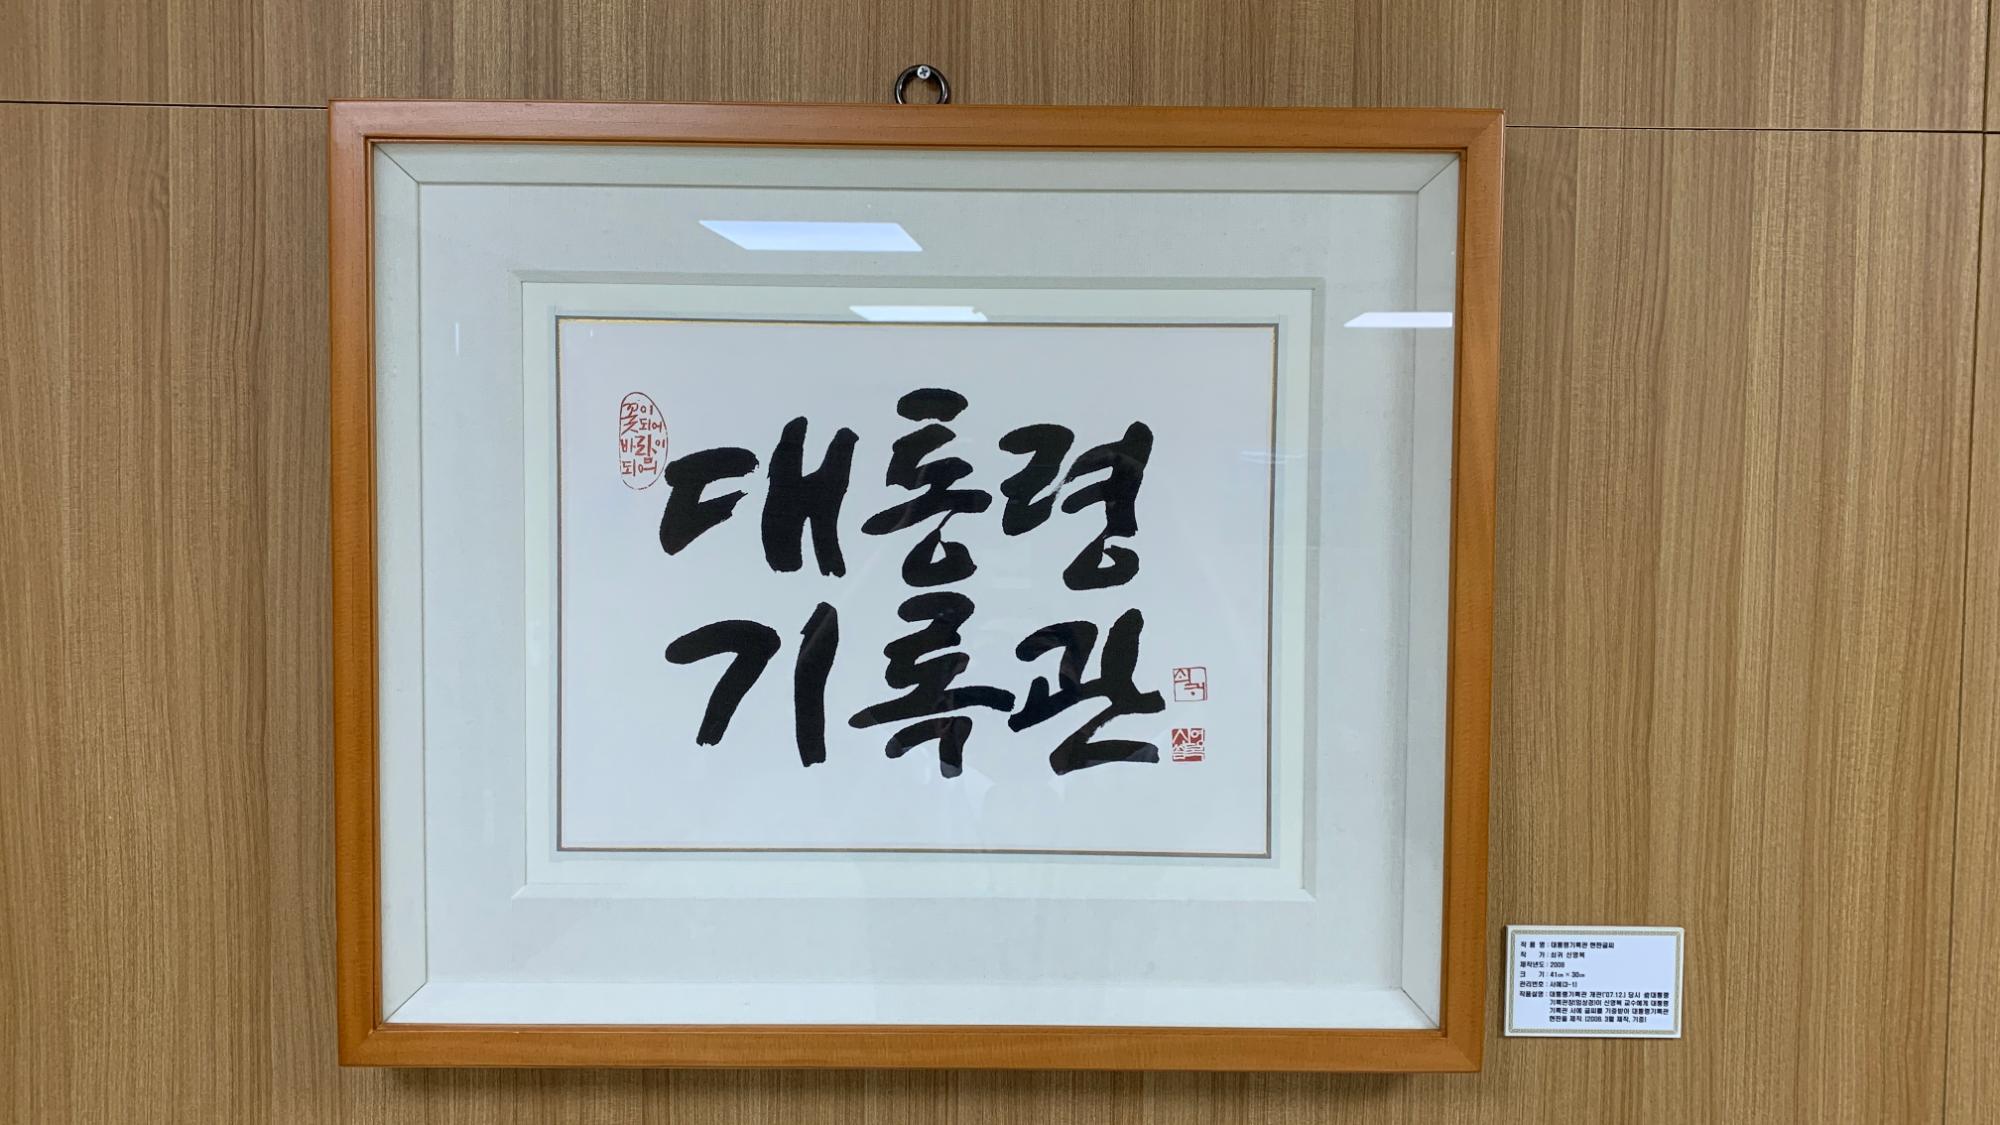 꽃이
되어
바람이
되어
대통령
기록관
쇠귀
작 품 명 : 대통령기록관 현판글씨
작 가 : 쇠귀 신영복
제작년도 : 2008
크 기 : 41㎝ × 30㎝
관리번호 : 서예(3-1)
작품설명 : 대통령기록관 개관('07.12.) 당시 前대통령
기록관장(임상경)이 신영복 교수에게 대통령
기록관 서예 글씨를 기증받아 대통령기록관
현판을 제작. (2008. 3월 제작, 기증)